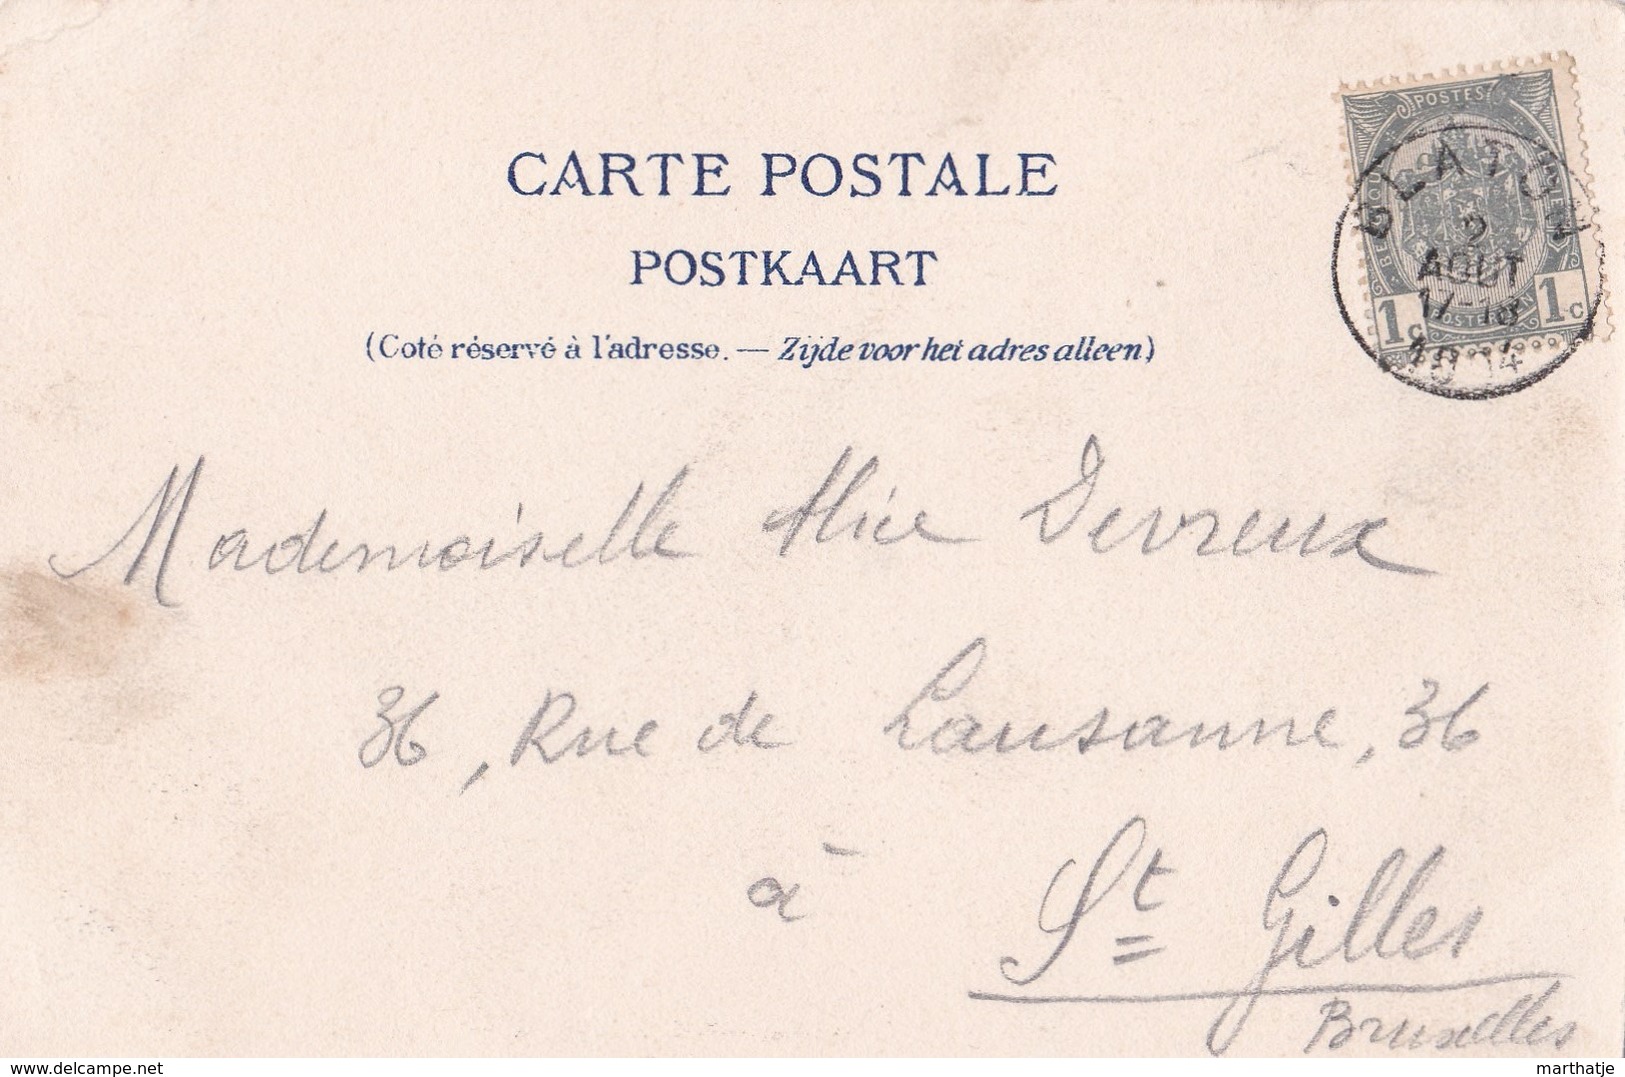 CARTE POSTALE
POSTKAART
(Coté réservé à l'adresse. — Zijde voor het adres alleen)
POSTES
1c 1c
BLATON
2
AOUT
17-18
Mademoiselle Alice Devreux
36, Rue de Lausanne, 36
à St Gilles
Bruxelles
delcampe.net
marthatje